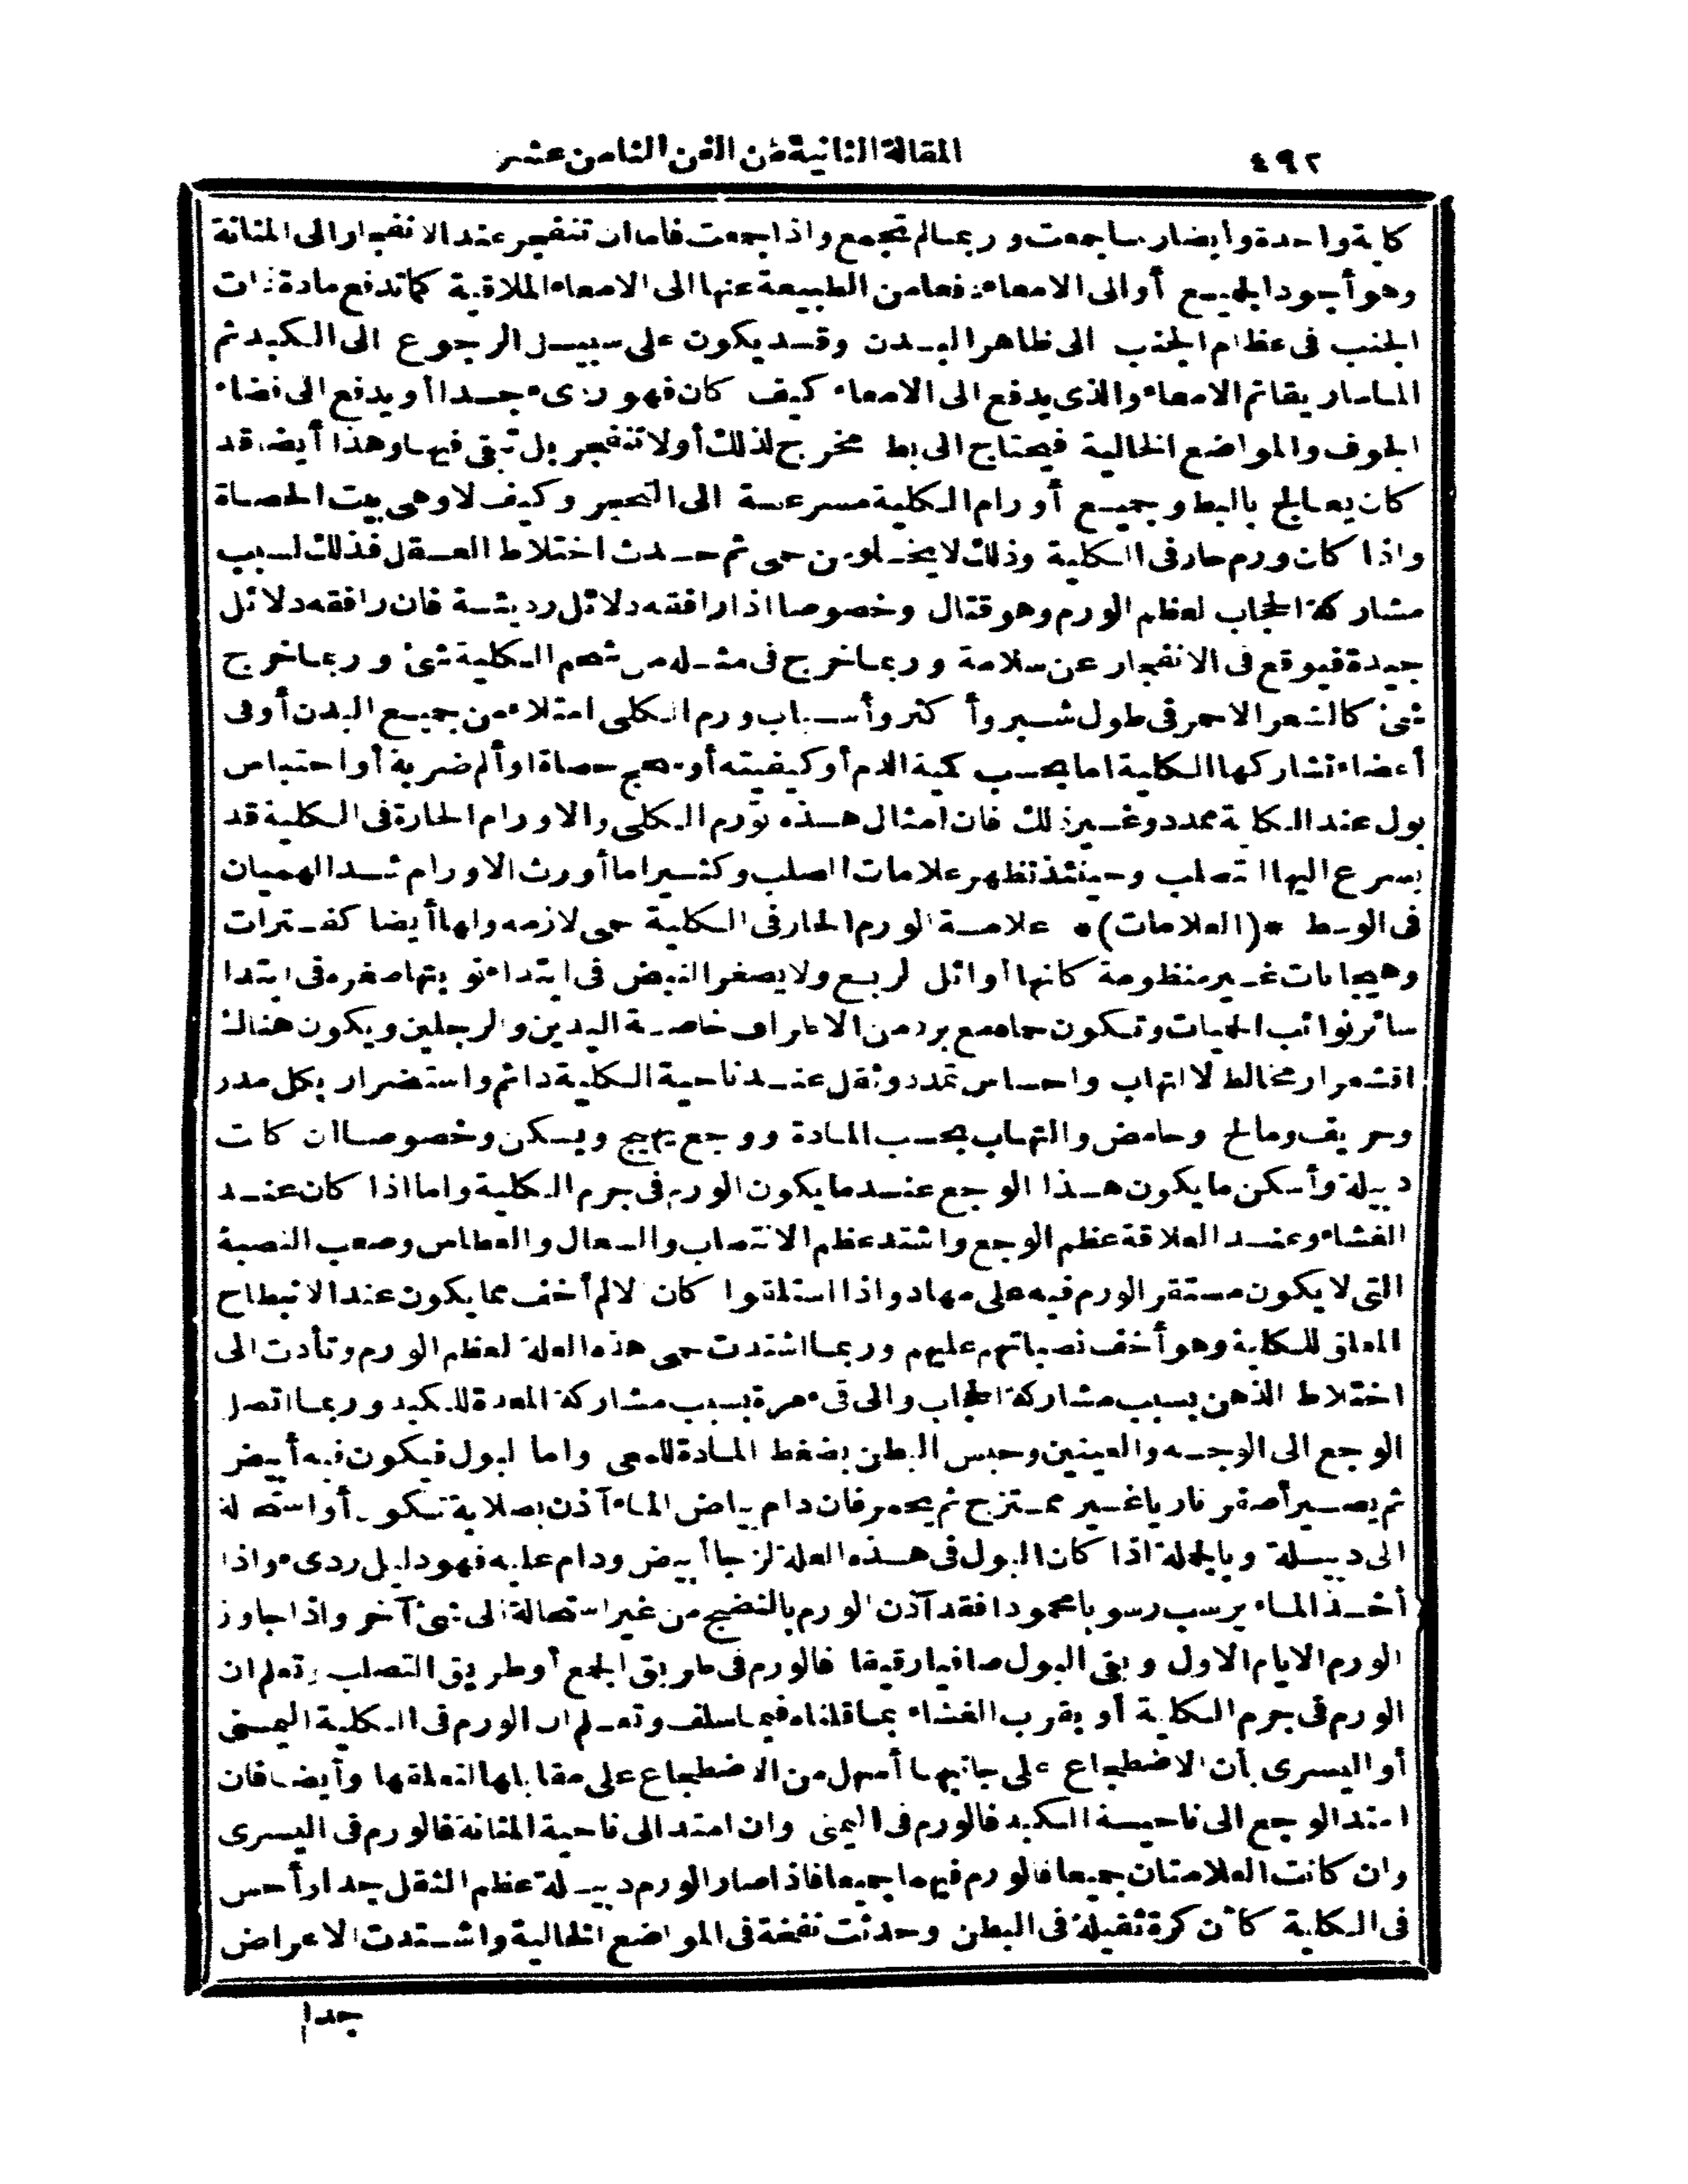 ٤٩٢
المقالة الثانية من الفن الثامن عشر
كلية واحدة وايضا ربما جمعت وربما لم تجمع واذا جمعت فاما ان تنفجر عند الانفجار الى المثانة
وهو أجود الجميع أو الى الامعاء دفعا من الطبيعة عنها الى الامعاء الملاقية كما تدفع مادة ذات
الجنب فى عظام الجنب الى ظاهر البدن وقد يكون على سبيل الرجوع الى الكبد ثم
الماساريقا ثم الامعاء والذى يدفع الى الامعاء كيف كان فهو ردىء جدا أو يدفع الى فضاء
الجوف والمواضع الخالية فيحتاج الى بط مخرج لذلك أو لا تنفجر بل تبقى فيها وهذا أيضا قد
كان يعالج بالبط وجميع أورام الكلية مسرعة الى التحجر وكيف لا وهى بيت الحصاة
واذا كان ورم حار فى الكلية وذلك لا يخلو من حمى ثم حدث اختلاط العقل فذلك لسبب
مشاركة الحجاب لعظم الورم وهو قتال وخصوصا اذا رافقه دلائل رديئة فان رافقه دلائل
جيدة فيوقع فى الانفجار عن سلامة وربما خرج فى مثله من شحم الكلية شئ وربما خرج
شئ كالشعر الاحمر فى طول شبر وأكثر وأسباب ورم الكلى امتلاء من جميع البدن أو فى
أعضاء تشاركها الكلية اما بحسب كمية الدم أو كيفيته أو سحج حصاة او ألم ضربة أو احتباس
بول عند الكلية ممدد وغير ذلك فان امثال هذه تورم الكلى والاورام الحارة فى الكلية قد
يسرع اليها التصلب وحينئذ تظهر علامات الصلب وكثيرا ما أورث الاورام شد الهميان
فى الوسط *(العلامات)* علامة الورم الحار فى الكلية حمى لازمه ولها أيضا كفترات
وهيجانات غير منظومة كانها أوائل الربع ولا يصغر النبض فى ابتداء نوبتها صغره فى ابتدا
سائر نوائب الحميات وتكون حماه مع برد من الاطراف خاصة اليدين والرجلين ويكون هناك
اقشعرار مخالط لالتهاب واحساس تمدد وثقل عند ناحية الكلية دائم واستضرار بكل مدر
وحريف ومالح وحامض والتهاب بحسب المادة ووجع يهيج ويسكن وخصوصا ان كانت
دبيلة وأسكن ما يكون هذا الوجع عند ما يكون الورم فى جرم الكلية واما اذا كان عند
الغشاء وعند العلاقة عظم الوجع واشتد عظم الانتصاب والسعال والعطاس وصعب النصبة
التى لا يكون مستقر الورم فيه على مهاد واذا استلقوا كان الالم أخف مما يكون عند الانبطاح
المعلق للكلية وهو أخف نصباتهم عليهم وربما اشتدت حمى هذه العلة لعظم الورم وتأدت الى
اختلاط الذهن بسبب مشاركة الحجاب والى قىء مرة بسبب مشاركة المعدة للكبد وربما اتصل
الوجع الى الوجه والعينين وحبس البطن بضغط المادة للمعى واما البول فيكون فيه أبيض
ثم يصير أصفر ناريا غير ممتزج ثم يحمر فان دام بياض الماء آذن بصلابة تكون أو استحالة
الى دبيلة وبالجملة اذا كان البول فى هذه العلة لزجا أبيض ودام عليه فهو دليل ردىء واذا
أخذ الماء يرسب رسوبا محمودا فقد آذن الورم بالنضج من غير استحالة الى شئ آخر واذا جاوز
الورم الايام الاول وبقى البول صافيا رقيقا فالورم فى طريق الجمع أو طريق التصلب وتعلم ان
الورم فى جرم الكلية أو بقرب الغشاء بما قلناه فيما سلف وتعلم ان الورم فى الكلية اليمنى
أو اليسرى بأن الاضطجاع على جانبها أسهل من الاضطجاع على مقابلها لتعلقها وأيضا فان
امتد الوجع الى ناحية الكبد فالورم فى اليمنى وان امتد الى ناحية المثانة فالورم فى اليسرى
وان كانت العلامتان جميعا فالورم فيهما جميعا فاذا صار الورم دبيلة عظم الثقل جدا وأحس
فى الكلية كأن كرة ثقيلة فى البطن وحدثت نفخة فى المواضع الخالية واشتدت الاعراض
جدا